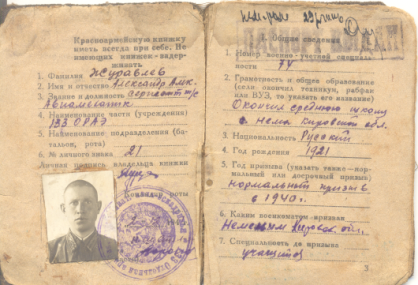 Красноармейскую книжку
иметь всегда при себе. Не
имеющих книжек — задер-
живать
1. Фамилия Журавлев
2. Имя и отчество Александр Алек.
3. Звание и должность Сержант
Авиамеханик
4. Наименование части (учреждения)
5. Наименование подразделения (ба-
тальон, рота)
6. № личного знака 21
Личная подпись владельца книжки
роты
I. Общие сведения
1. Номер военно-учетной специаль-
ности 74
2. Грамотность и общее образование
(если окончил техникум, рабфак
или ВУЗ, то указать его название)
Окончил среднюю школу
с. Нема Кировской обл.
3. Национальность Русский
4. Год рождения 1921
5. Год призыва (указать также — нор-
мальный или досрочный призыв)
Нормальный призыв
в 1940 г.
6. Каким военкоматом призван
Немским Кировск. обл.
7. Специальность до призыва
учащийся
3